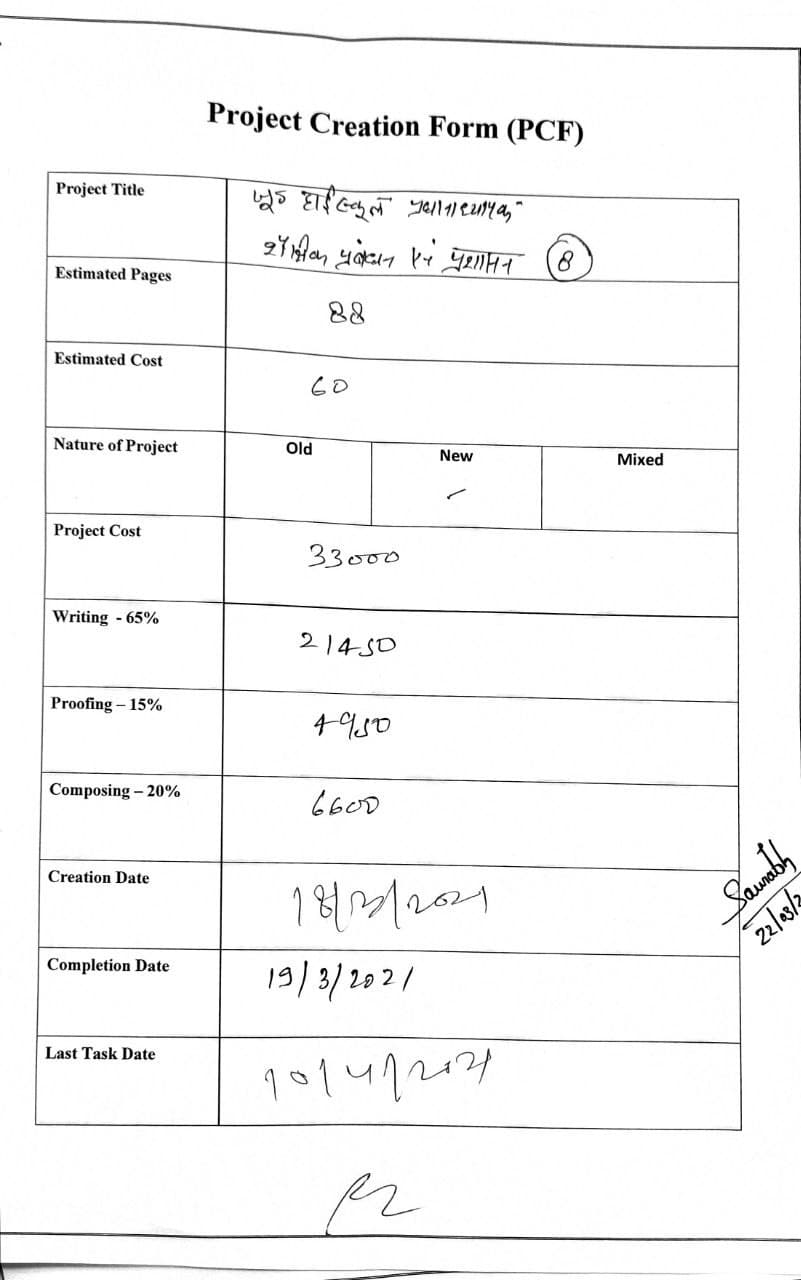 Project Creation Form (PCF)
Project Title
जूठ हाईस्कूल प्रधानाध्यापक
शैक्षिक प्रबंधन एवं प्रशासन 8
Estimated Pages
88
Estimated Cost
60
Nature of Project
Old New Mixed
Project Cost
33000
Writing - 65%
21450
Proofing – 15%
4950
Composing – 20%
6600
Creation Date
18/3/2021
Saurabh
22/03/2
Completion Date
19/3/2021
Last Task Date
10/4/2021